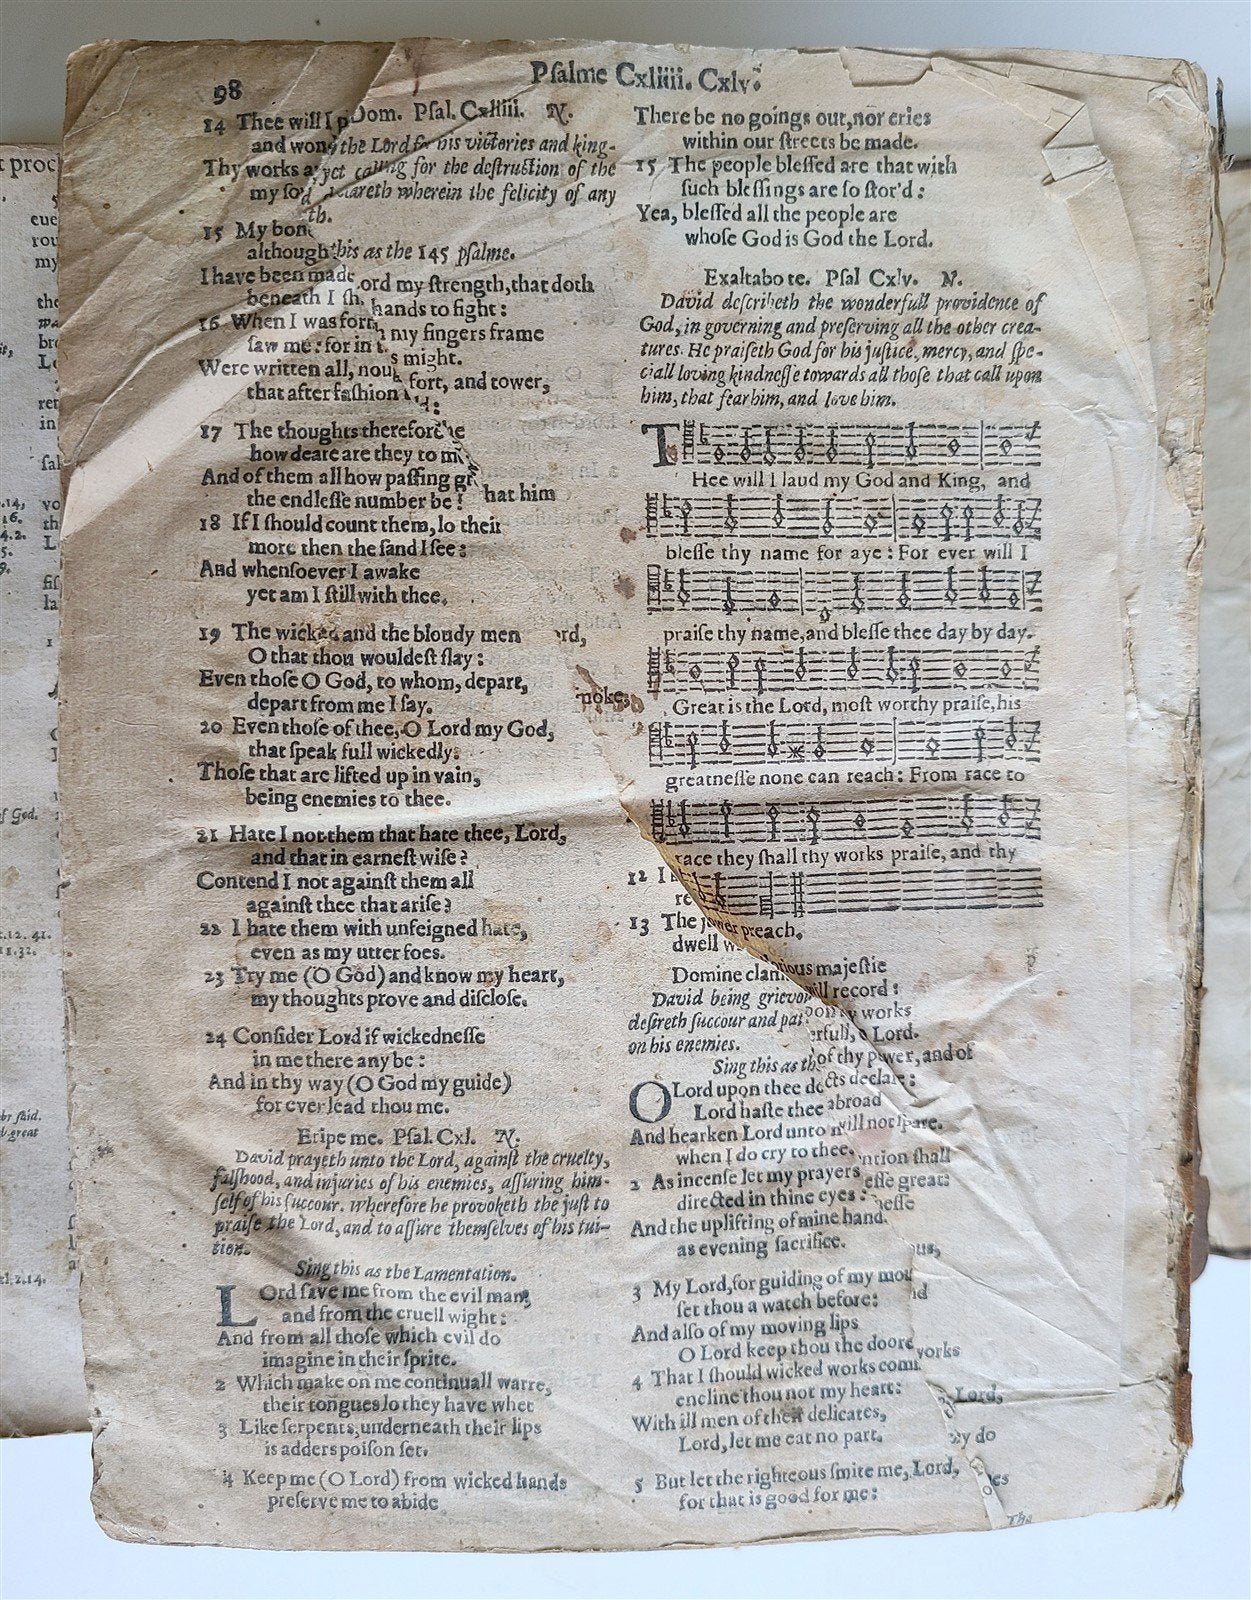 98
Psalme Cxliiii. Cxlv.
14 Thee will I p
Dom. Psal. Cxliiii. N.
and won
the Lord for his victories and king-
Thy works a
yet calling for the destruction of the
my so
lareth wherein the felicity of any
th.
15 My bon
although
his as the 145 psalme.
I have been made
ord my strength, that doth
beneath I sh
hands to fight:
16 When I was for
my fingers frame
saw me: for in
s might.
Were written all, nou
fort, and tower,
that after fashion
17 The thoughts therefor
he
how deare are they to m
And of them all how passing gr
the endlesse number be!
hat him
18 If I should count them, lo their
more then the sand I see:
And whensoever I awake
yet am I still with thee.
19 The wicked and the bloudy men
ord,
O that thou wouldest slay:
Even those O God, to whom, depart,
depart from me I say.
noke,
20 Even those of thee, O Lord my God,
that speak full wickedly:
Those that are lifted up in vain,
being enemies to thee.
21 Hate I not them that hate thee, Lord,
and that in earnest wise?
Contend I not against them all
against thee that arise?
22 I hate them with unfeigned hate,
even as my utter foes.
23 Try me (O God) and know my heart,
my thoughts prove and disclose.
24 Consider Lord if wickednesse
in me there any be:
And in thy way (O God my guide)
for ever lead thou me.
Eripe me. Psal. Cxl. N.
David prayeth unto the Lord, against the cruelty,
falshood, and injuries of his enemies, assuring him-
self of his succour. Wherefore he provoketh the just to
praise the Lord, and to assure themselves of his tui-
tion.
Sing this as the Lamentation.
LOrd save me from the evil man,
and from the cruell wight:
And from all those which evil do
imagine in their sprite.
2 Which make on me continuall warre,
their tongues lo they have whet
3 Like serpents, underneath their lips
is adders poison set.
4 Keep me (O Lord) from wicked hands
preserve me to abide
There be no goings out, nor cries
within our streets be made.
15 The people blessed are that with
such blessings are so stor'd:
Yea, blessed all the people are
whose God is God the Lord.
Exaltabo te. Psal Cxlv. N.
David describeth the wonderfull providence of
God, in governing and preserving all the other crea-
tures. He praiseth God for his justice, mercy, and spe-
ciall loving kindnesse towards all those that call upon
him, that fear him, and love him.
THee will I laud my God and King, and
blesse thy name for aye: For ever will I
praise thy name, and blesse thee day by day.
Great is the Lord, most worthy praise, his
greatnesse none can reach: From race to
race they shall thy works praise, and thy
12 I
re
13 The
wer preach.
dwell w
Domine clam
ious majestie
David being grievou
ill record:
desireth succour and pa
works
on his enemies.
erfull, o Lord.
Sing this as th
of thy power, and of
O Lord upon thee do
cts declare:
Lord haste thee
abroad
And hearken Lord unto
will not spare.
when I do cry to thee.
ntion shall
2 As incense let my prayers
esse great:
directed in thine eyes:
nesse
And the uplifting of mine hand.
as evening sacrifice.
ous,
3 My Lord, for guiding of my mou
nd
set thou a watch before:
And also of my moving lips
O Lord keep thou the doore
works
4 That I should wicked works com
encline thou not my heart:
Lord,
With ill men of their delicates,
Lord, let me eat no part.
do
5 But let the righteous smite me, Lord,
for that is good for me:
es
The
t proc
eue
rou
my
the
fal
vo
th
L
of God.
.12. 41.
br said.
great